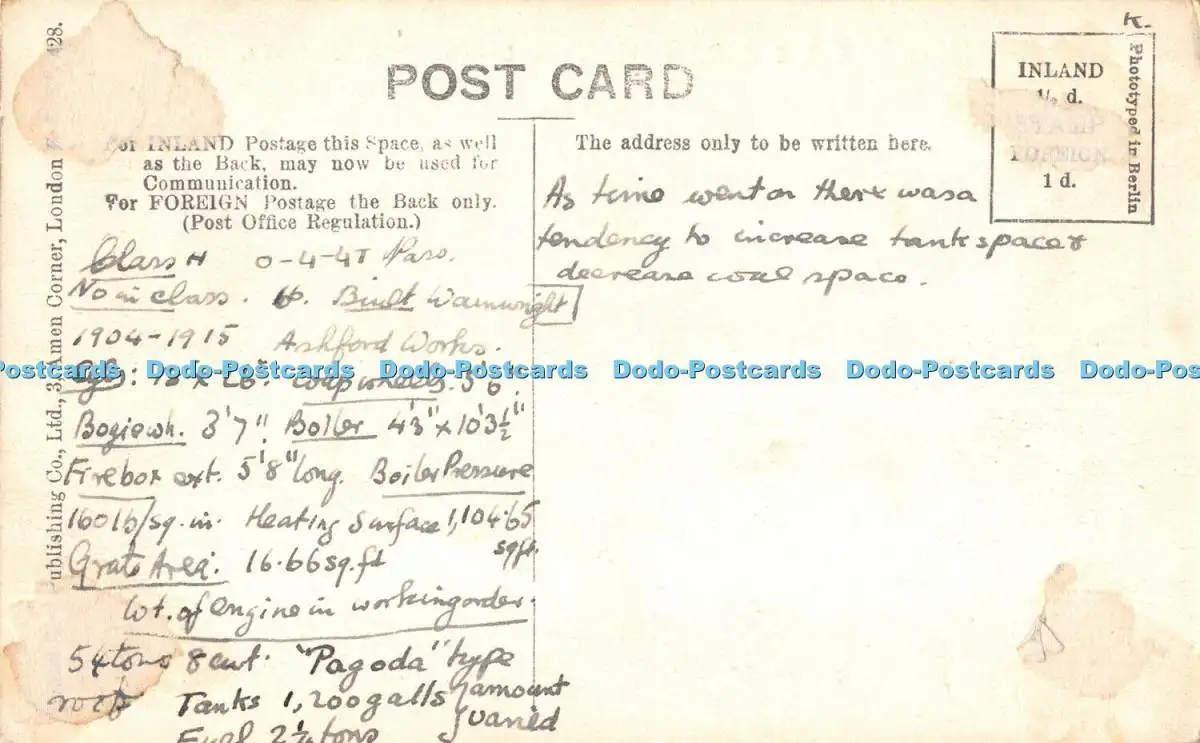 K.
428.
POST CARD
INLAND
½ d.
1 d.
Phototyped in Berlin
For INLAND Postage this Space, as well
as the Back, may now be used for
Communication.
For FOREIGN Postage the Back only.
(Post Office Regulation.)
The address only to be written here.
ublishing Co., Ltd., 3, Amen Corner, London
Class H 0-4-4T Pass.
No in class. Built Wainwright
1904-1915 Ashford Works.
Cyls: 18" x 26". coup wheels.
Bogie wh. 3'7". Boiler 4'3" x 10'3½"
Firebox ext. 5'8" long. Boiler Pressure
160 lb/sq. in. Heating Surface 1,104.65
sq ft.
Grate Area. 16.66 sq. ft
Wt. of engine in working order.
54 tons 8 cwt. "Pagoda" type
roof Tanks 1,200 galls amount
varied
Fuel 2¼ tons
As time went on there was a
tendency to increase tank space &
decrease coal space.
Dodo-Postcards Dodo-Postcards Dodo-Postcards Dodo-Postcards Dodo-Pos